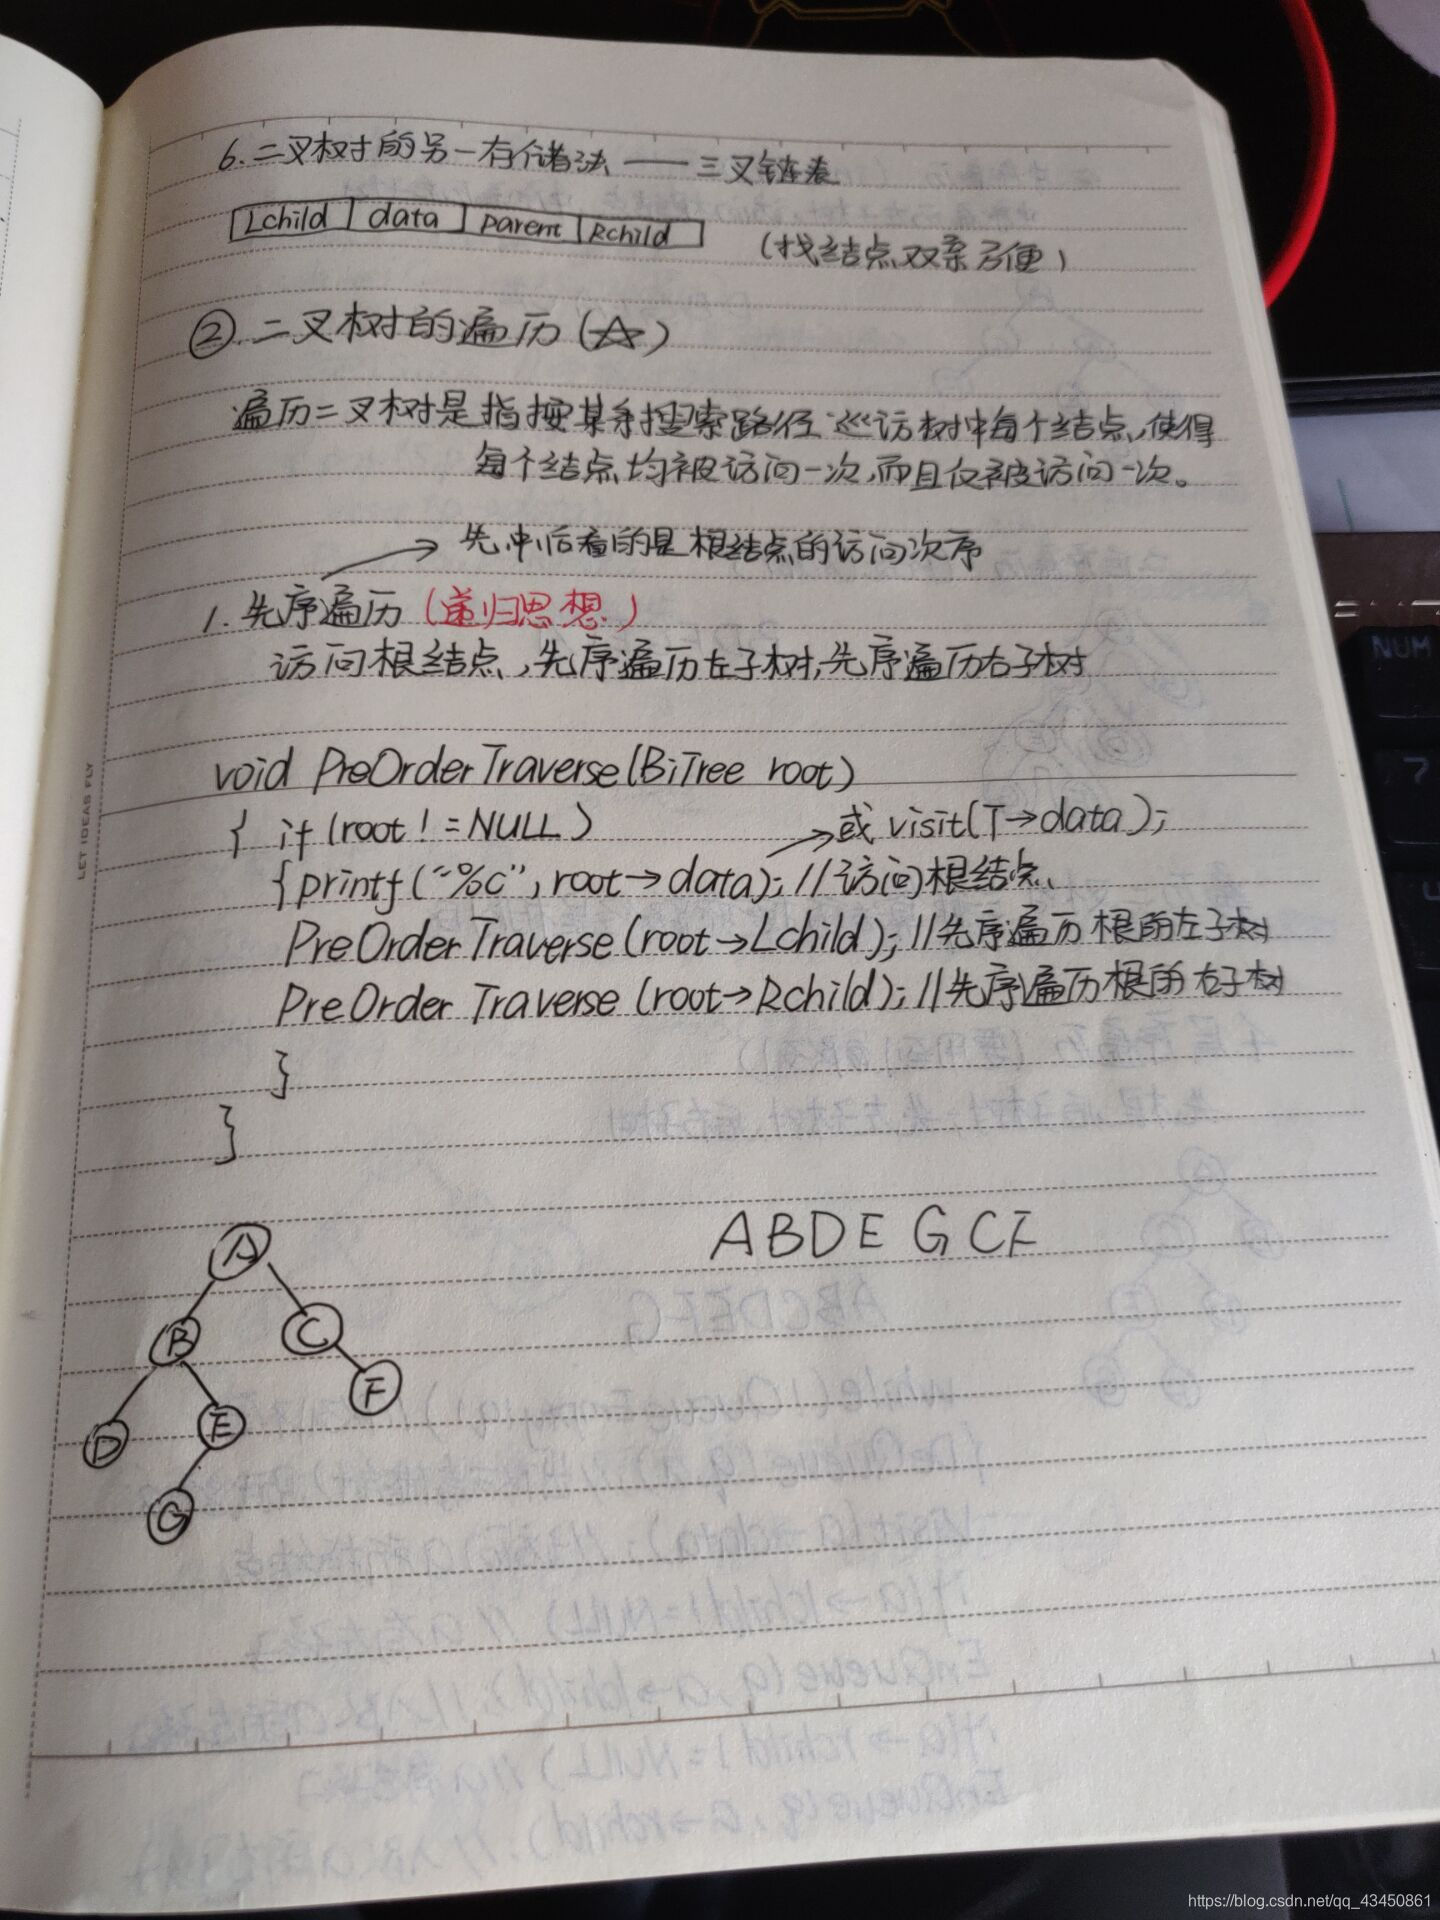 6.二叉树的另一存储法 —— 三叉链表
Lchild data parent Rchild
(找结点双亲方便)
②.二叉树的遍历(☆)
遍历二叉树是指按某条搜索路径巡访树中每个结点,使得
每个结点均被访问一次,而且仅被访问一次。
→ 先中后看的是根结点的访问次序
1.先序遍历(递归思想)
访问根结点,先序遍历左子树,先序遍历右子树
void PreOrderTraverse(BiTree root)
{ if(root!=NULL)
→或 visit(T→data);
{printf("%c",root→data);//访问根结点
PreOrderTraverse(root→Lchild);//先序遍历根的左子树
PreOrderTraverse(root→Rchild);//先序遍历根的右子树
}
}
ABDEGCF
A
B C
F
D E
G
LET IDEAS FLY
NUM
7
https://blog.csdn.net/qq_43450861